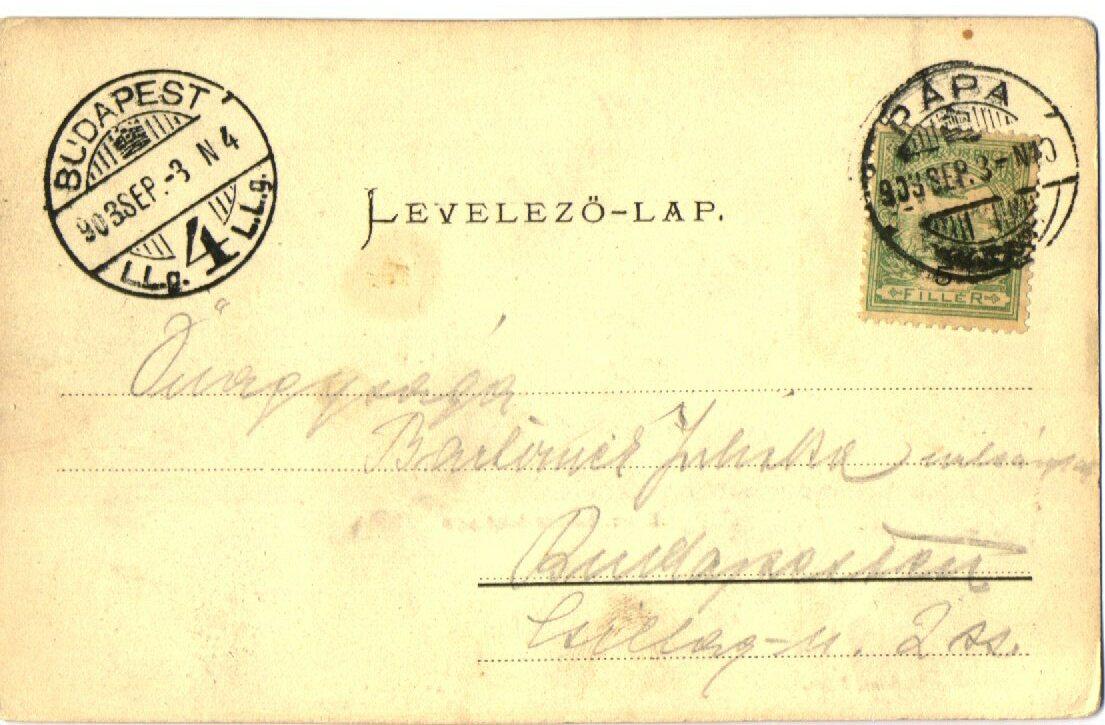 BUDAPEST
903 SEP.-3 N 4
I.L.g. 4 I.L.g.
PÁPA
903 SEP. 3-N4
FILLÉR
LEVELEZŐ-LAP.
Őnagysága
Juliska
Budapesten
Csillag-u. 2 sz.